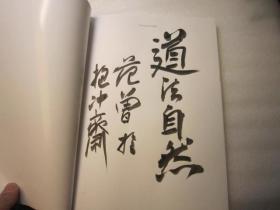 道法自然
范曾於
抱冲齋